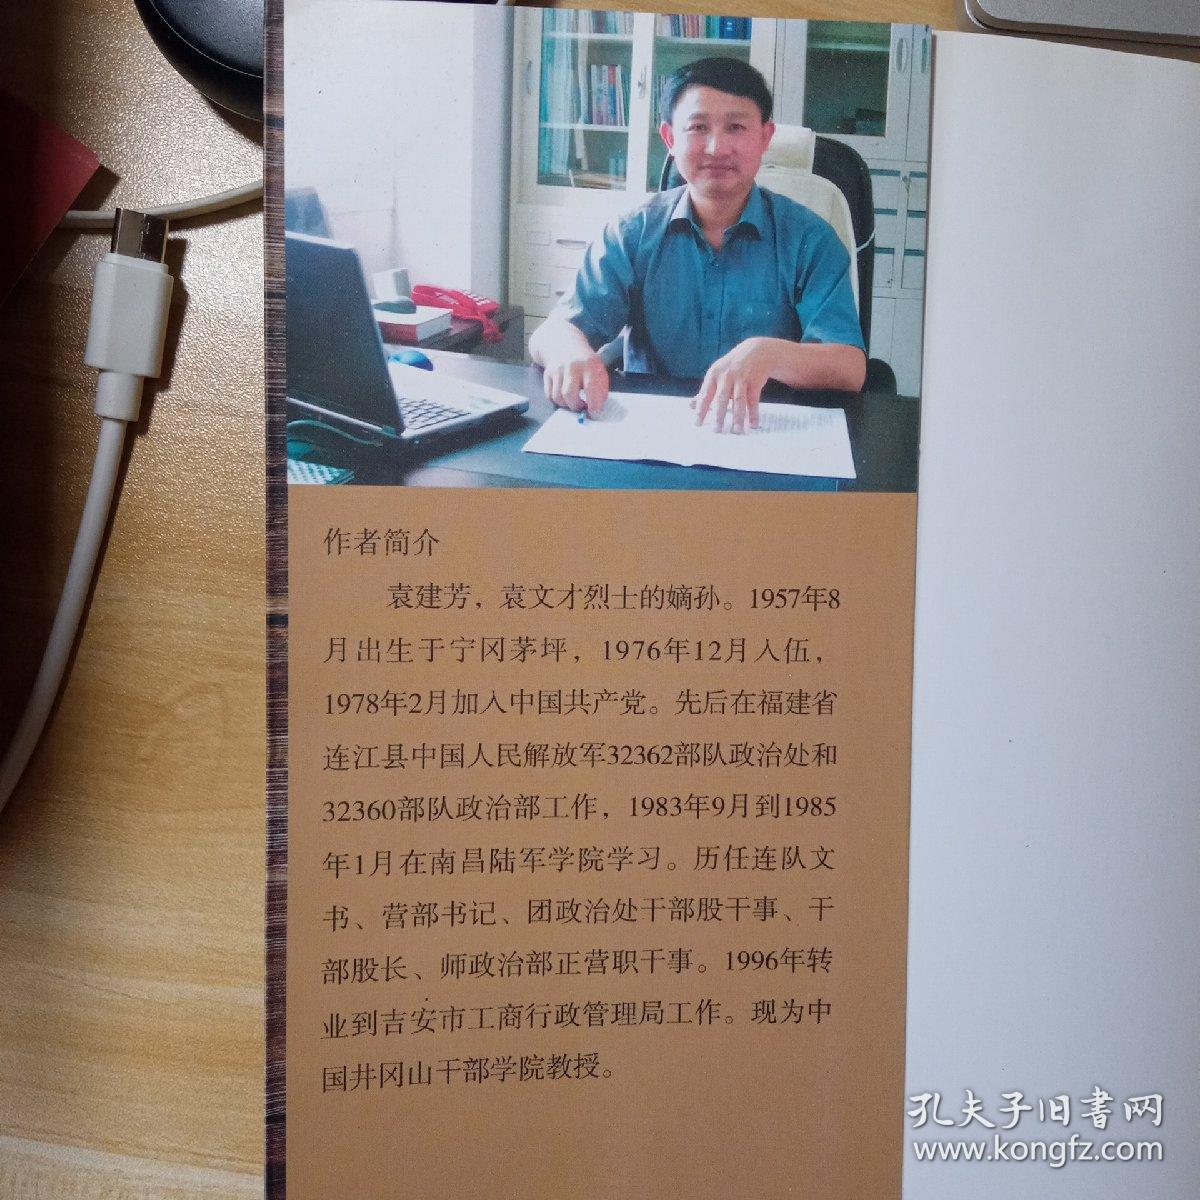 作者简介
袁建芳，袁文才烈士的嫡孙。1957年8
月出生于宁冈茅坪，1976年12月入伍，
1978年2月加入中国共产党。先后在福建省
连江县中国人民解放军32362部队政治处和
32360部队政治部工作，1983年9月到1985
年1月在南昌陆军学院学习。历任连队文
书、营部书记、团政治处干部股干事、干
部股长、师政治部正营职干事。1996年转
业到吉安市工商行政管理局工作。现为中
国井冈山干部学院教授。
孔夫子旧书网
www.kongfz.com